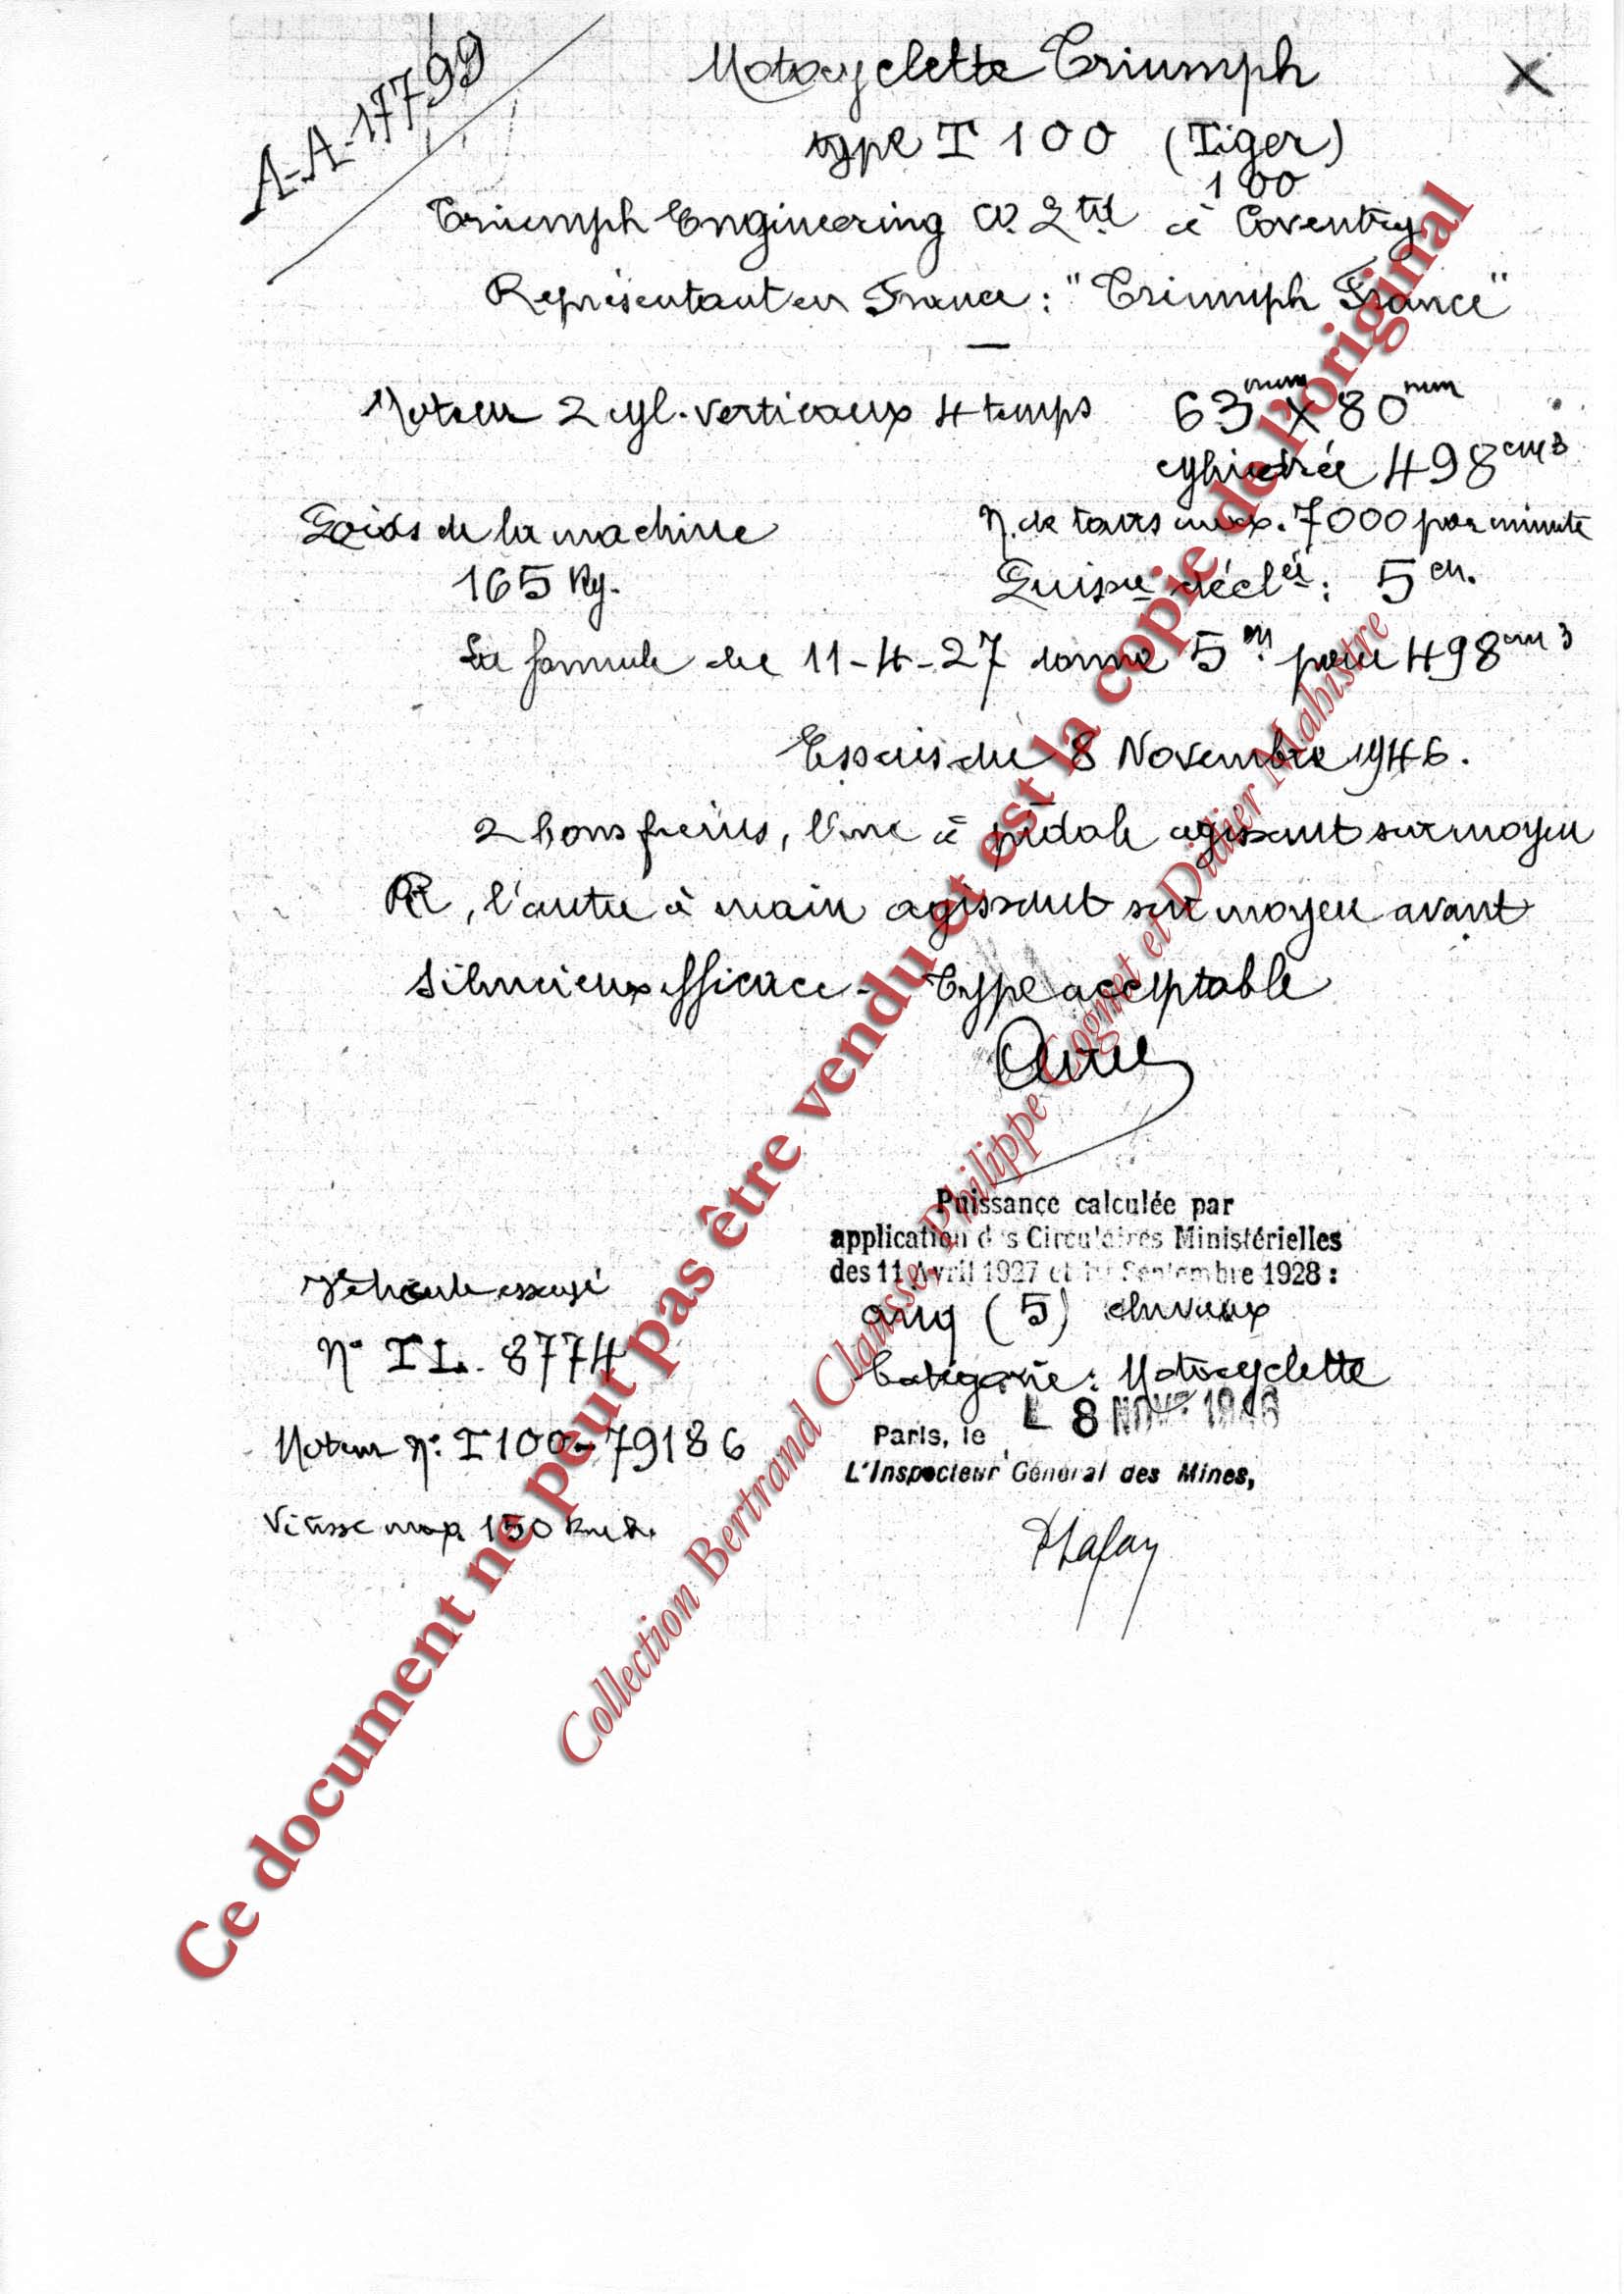 A-A-17799
Motocyclette Triumph
type T 100 (Tiger)
100
Triumph Engineering Co Ltd à Coventry
Représentant en France : "Triumph France"
Moteur 2 cyl. verticaux 4 temps 63mm x 80mm
cylindrée 498 cm3
Poids de la machine N. de tours max. 7000 par minute
165 Kg. Puisce décl ée : 5 ch.
La formule du 11-4-27 donne 5 ch pour 498 cm3
Essais du 8 Novembre 1946.
2 bons freins, l'un à pédale agissant sur moyeu
AR, l'autre à main agissant sur moyeu avant
Silencieux efficace - Type acceptable
Puissance calculée par
application des Circulaires Ministérielles
des 11 Avril 1927 et Septembre 1928 :
Véhicule essayé
cinq (5) chevaux
N° TL. 8774
Catégorie : Motocyclette
Paris, le L 8 NOV. 1946
Moteur N° T100-79186
L'Inspecteur Général des Mines,
Vitesse max 150 km h.
Ce document ne peut pas être vendu et est la copie de l'original
Collection Bertrand Claisse Philippe Cognet et Didier Mahistre